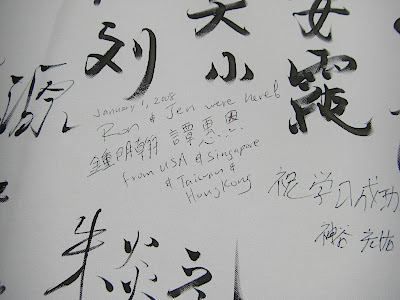 刘
小
霞
源
January 1, 2008
Ron & Jen were here!
鍾明翰 譚惠恩
from USA & Singapore
& Taiwan &
Hong Kong
祝学口成功
神谷
朱焱